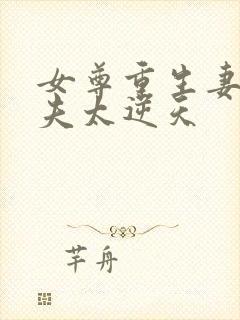 女尊重生妻
夫太逆天
芊舟